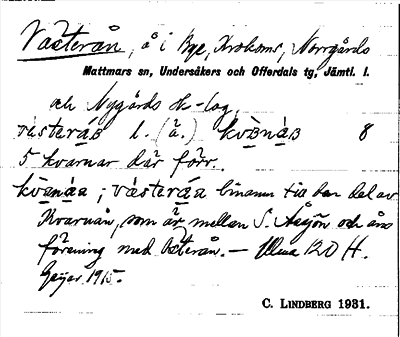 Västerån, å i Bye, Krokoms, Norrgårds
Mattmars sn, Undersåkers och Offerdals tg, Jämtl. l.
och Nygårds sk-lag.
västeráa l. (ā.) kvānáa 8
5 kvarnar där förr.
kvānáa; västeráa binamn till den del av
Kvarnån, som är mellan S. Aasjön och åns
förening med Österån. — Ulma 120 H.
Geijer 1915.
C. LINDBERG 1931.